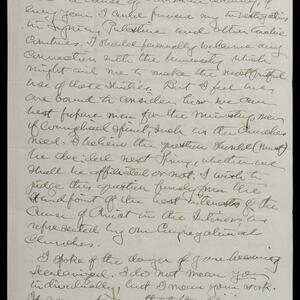 busy year I could pursue my investigations
in Syria, Palestine and other Arabic
Countries. I should personally welcome any
Connection with the University which
might aid me to make the most fruitful
use of those studies. But I feel we
are bound to consider how we can
best prepare men for the ministry, men
of Congregational spirit, such as the Churches
need. I believe the question should (must)
be decided next spring, whether we
shall be affiliated or not. I wish to
judge this question purely from the
standpoint of the best interests of the
Cause of Christ in the Interior as
represented by our Congregational
Churches.
I spoke of the danger of your becoming
Secularized. I do not mean you
individually, but I mean your work.